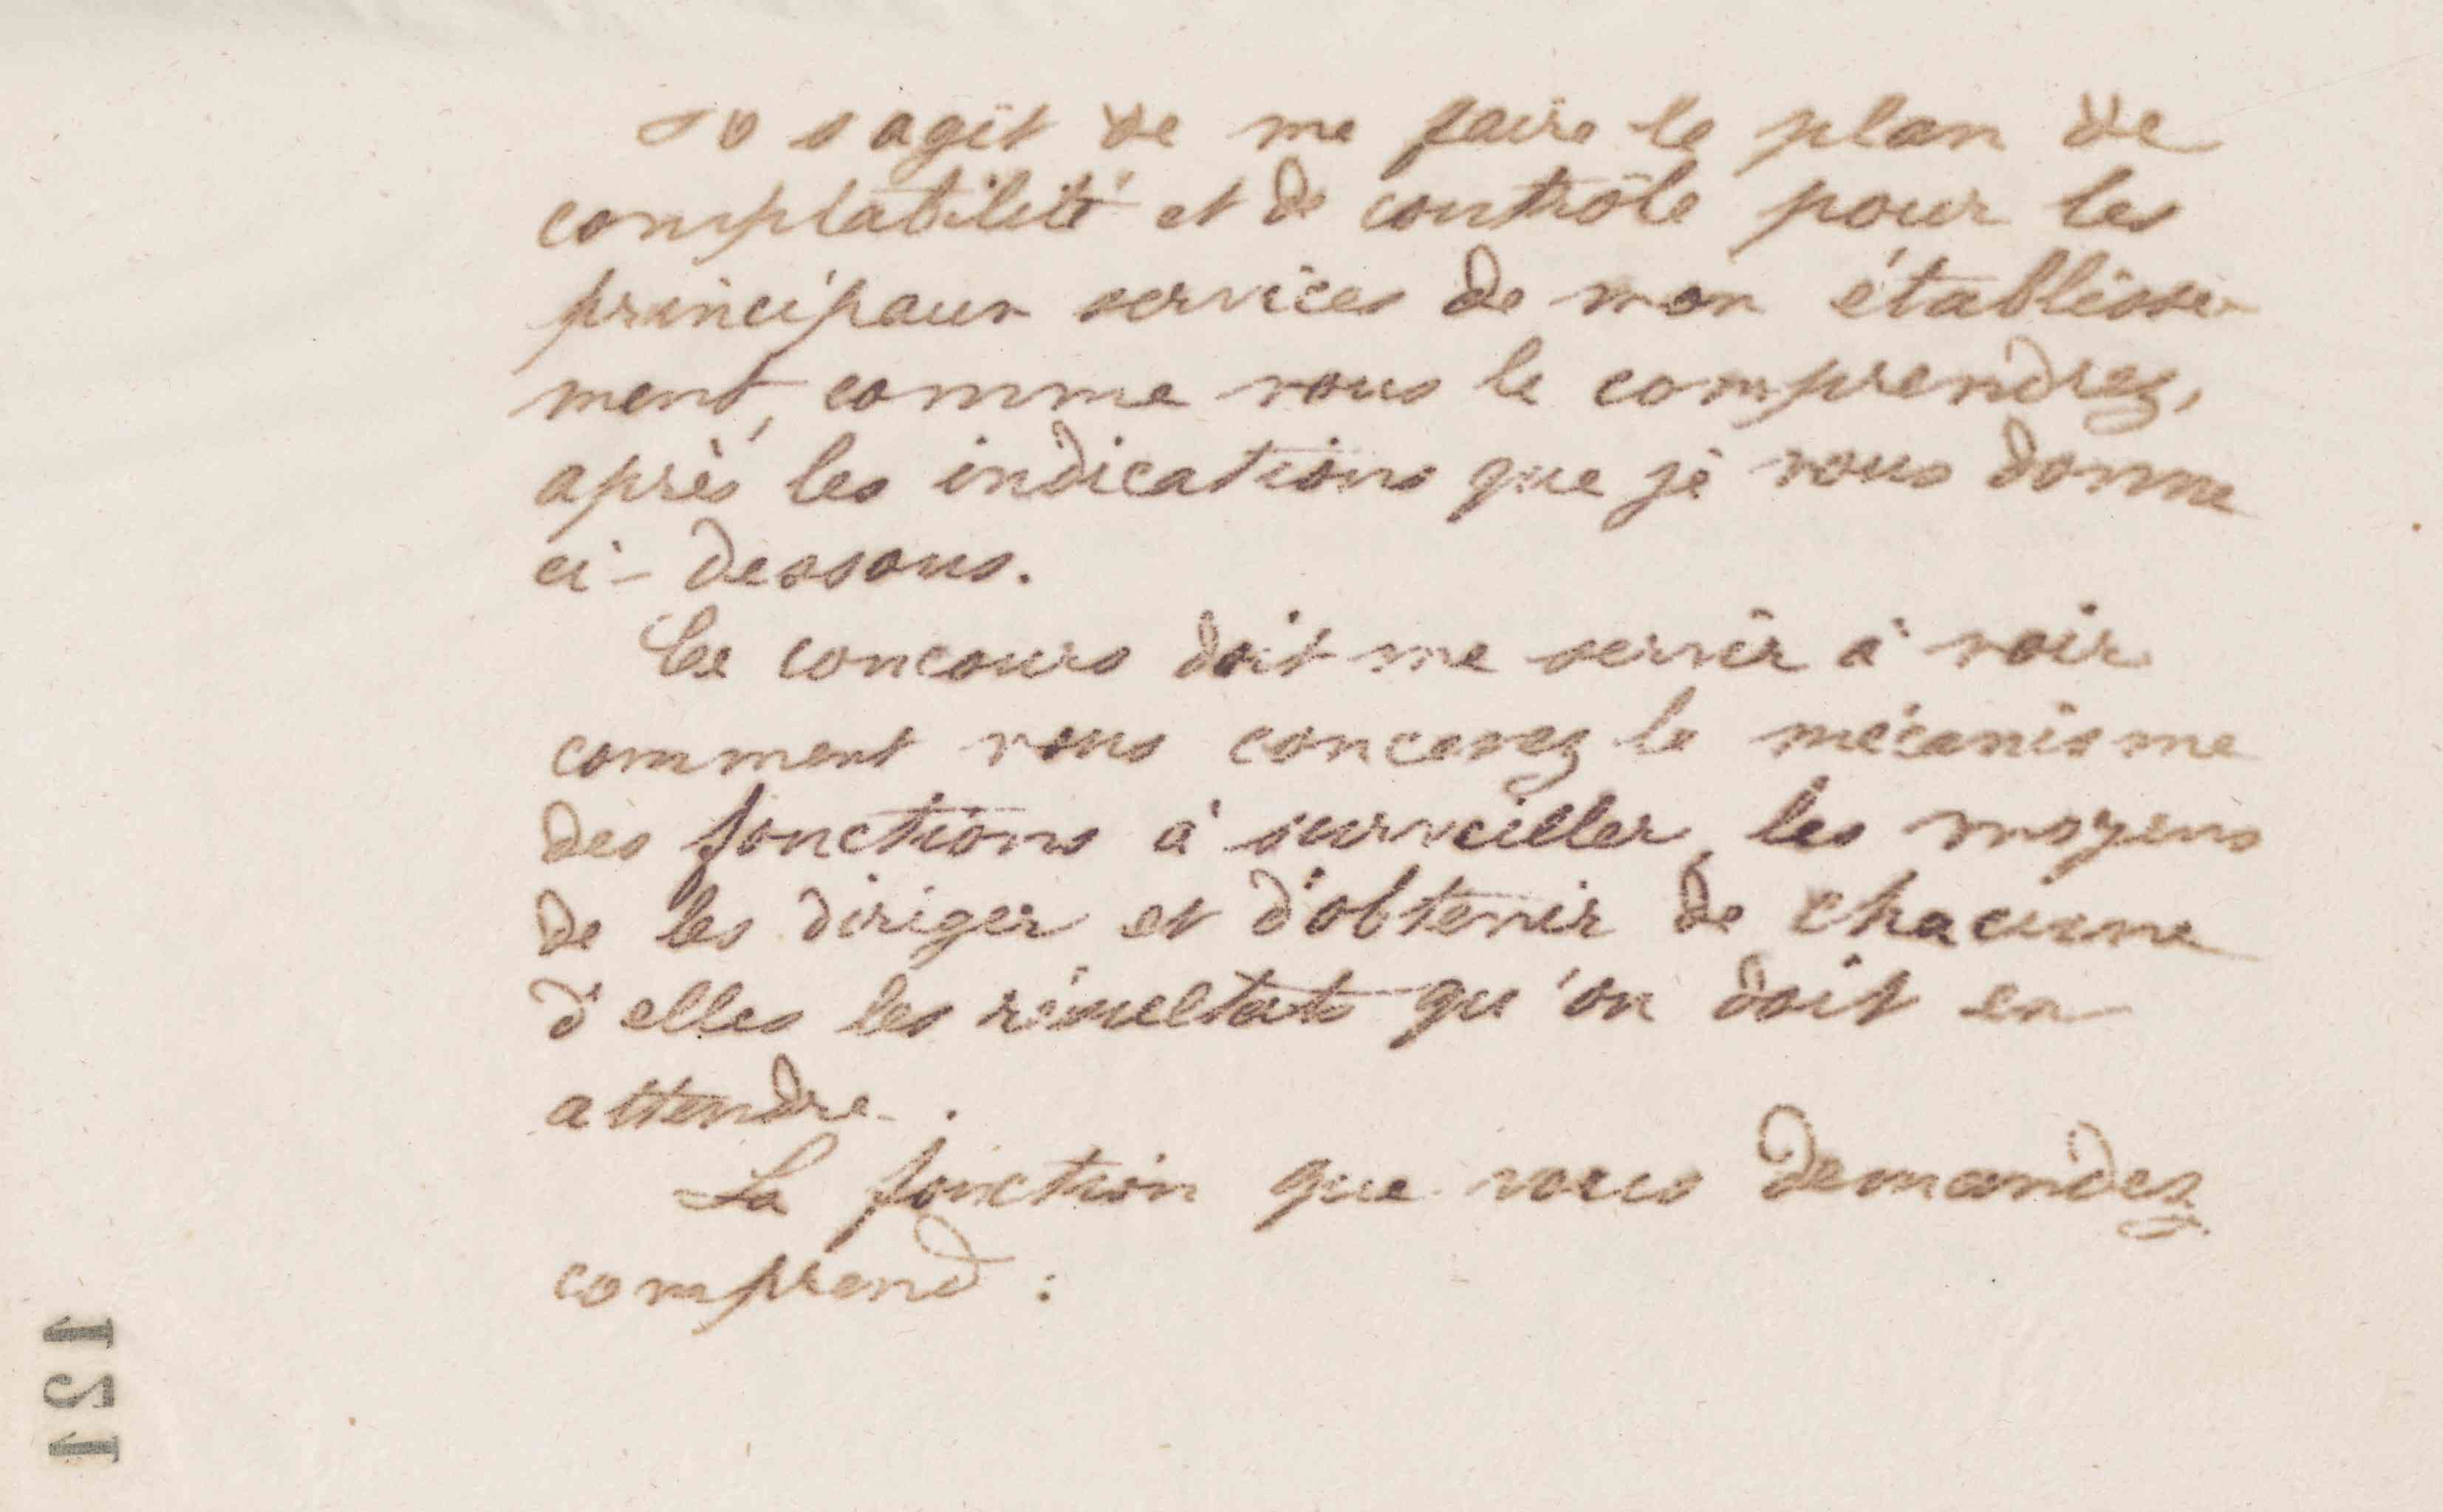 Il s'agit de me faire le plan de
comptabilité et de contrôle pour les
principaux services de mon établisse-
ment, comme vous le comprendrez,
après les indications que je vous donne
ci-dessous.
Ce concours doit me servir à voir
comment vous concevez le mécanisme
des fonctions à surveiller, les moyens
de les diriger et d'obtenir de chacune
d'elles les résultats qu'on doit en
attendre.
La fonction que vous demandez
comprend :
121